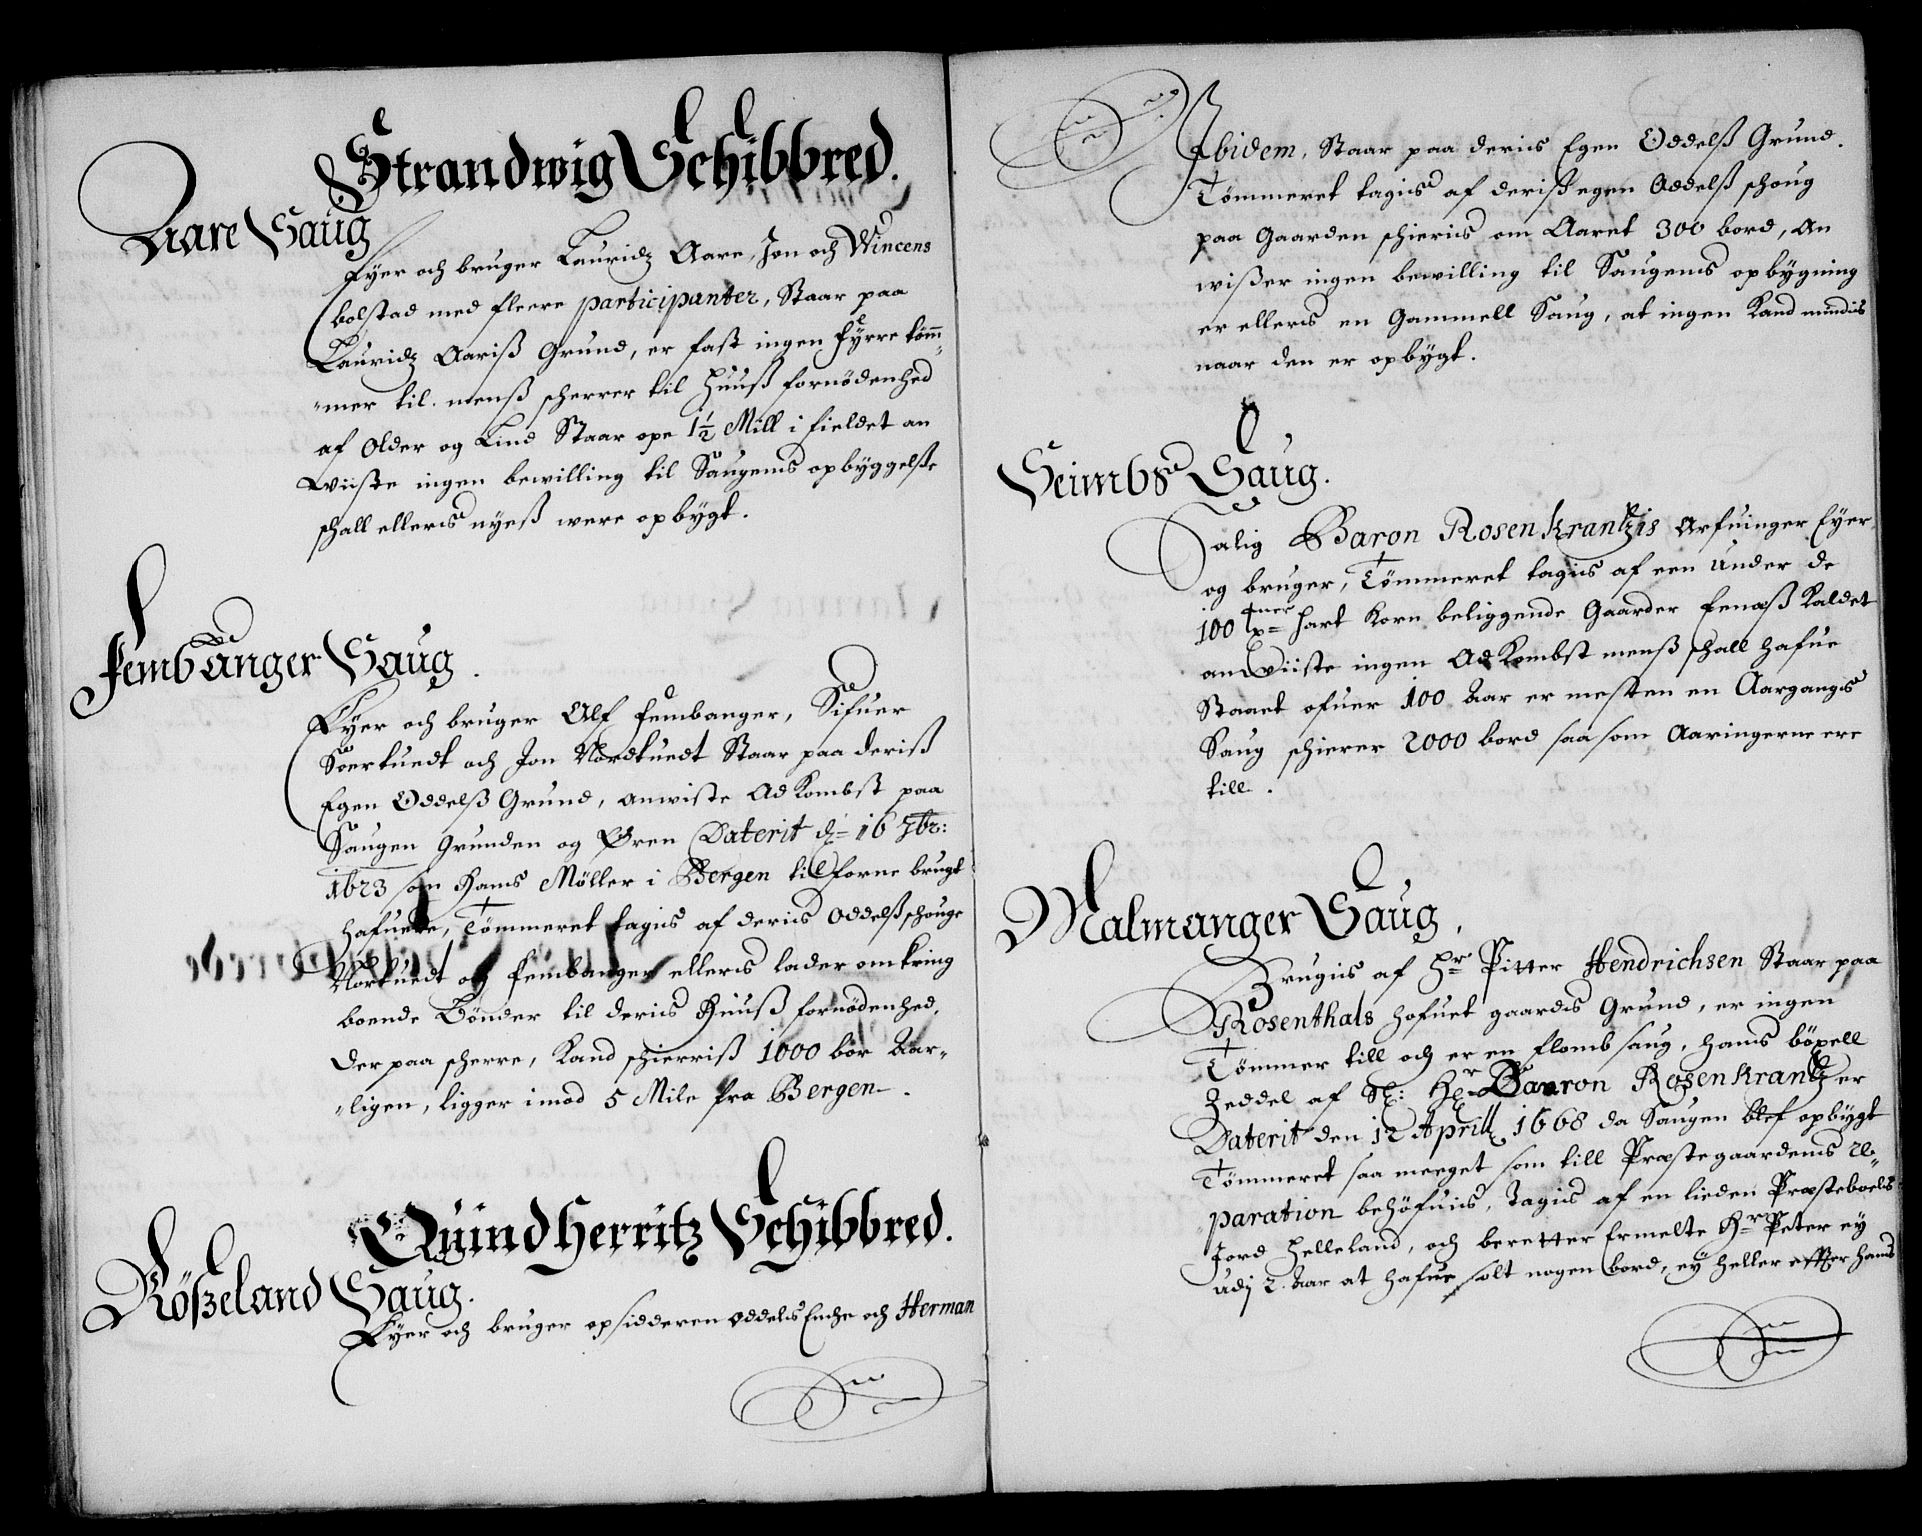 Strandwig Schibbred.
Aare Saug
Eyer och bruger Lauridz Aare, Jon och Wincens
bolstad med fleere participanter, Staar paa
Lauridz Aariß Grund, er fast ingen fyrre tömm
"mer til. menß scherrer til Huuß fornödenhed
af Older og Lind Staar ope 1½ Mill i fieldet an
Wiiste ingen bewilling til Saugens opbyggelße
schall ellers nyeß were opbygt.
Fembanger Saug.
Eyer och bruger Alf Fembanger, Sifuer
Soertuedt och Jon Nordtuedt Staar paa deriß
Egen Oddelß Grund, anwiste AdKombst paa
Saugen Grunden og Øren Daterit d. 16 7br:
1673 som Hans Möller i Bergen tilforne brugt
hafuer, Tömmeret tagis af deris oddelß schouge
Nortuedt og Fembanger ellers lader omkring
boende Bönder til deris Huuß fornödenhed,
der paa scherre, Kand schierriß 1000 bor Aar-
"ligen, ligger imod 5 Mile fra Bergen.
Quindherritz Schibbred.
Rößeland Saug.
Eyer och bruger opsidderen oddels Enche och Herman
Ibidem, Staar paa deris Egen Oddelß Grund.
Tömmeret tagis af deriß egen Oddelß schoug
paa Gaarden schieris om Aaret 300 bord, An
wißer ingen bewilling til Saugens opbygning
er ellers en Gammell Saug, at ingen Kand mindis
naar den er opbygt.
Seimbs Saug.
Salig Baron Rosenkrantzis Arfuinger Eyer
og bruger, Tömmeret tagis af een under de
100 tner hart Korn beliggende Gaarder Eenæß Kaldet
anWiiste ingen AdKombst menß schall hafue
Staaet ofuer 100 Aar er mesten en Aargangs
Saug schierer 2000 bord saa som Aaringerne ere
till.
Malmanger Saug.
Brugis af Hr Pitter Hendrichsen Staar paa
Rosenthals hofuet gaards Grund, er ingen
Tömmer till och er en flomb saug, hans böxell
Zeddel af Sl: Hr Baaron Rosenkrantz er
Daterit den 12 Aprill 1668 da Saugen blef opbygt
Tömmeret saa meeget som till Præstegaardens Re-
paration behöfuis, Tagis af en lieden Præsteboels
Jord Helleland, och beretter Ermelte Hr Peter ey
udj 2. Aar at hafue solt nogen bord, ey heller effter hans